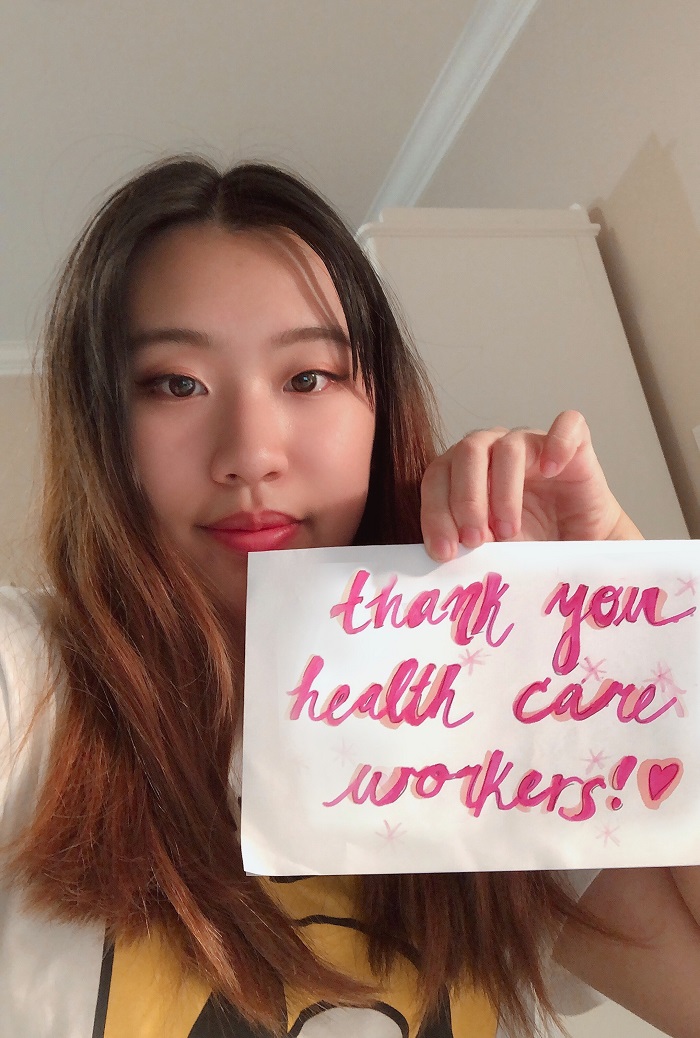 thank you
health care
workers!♡